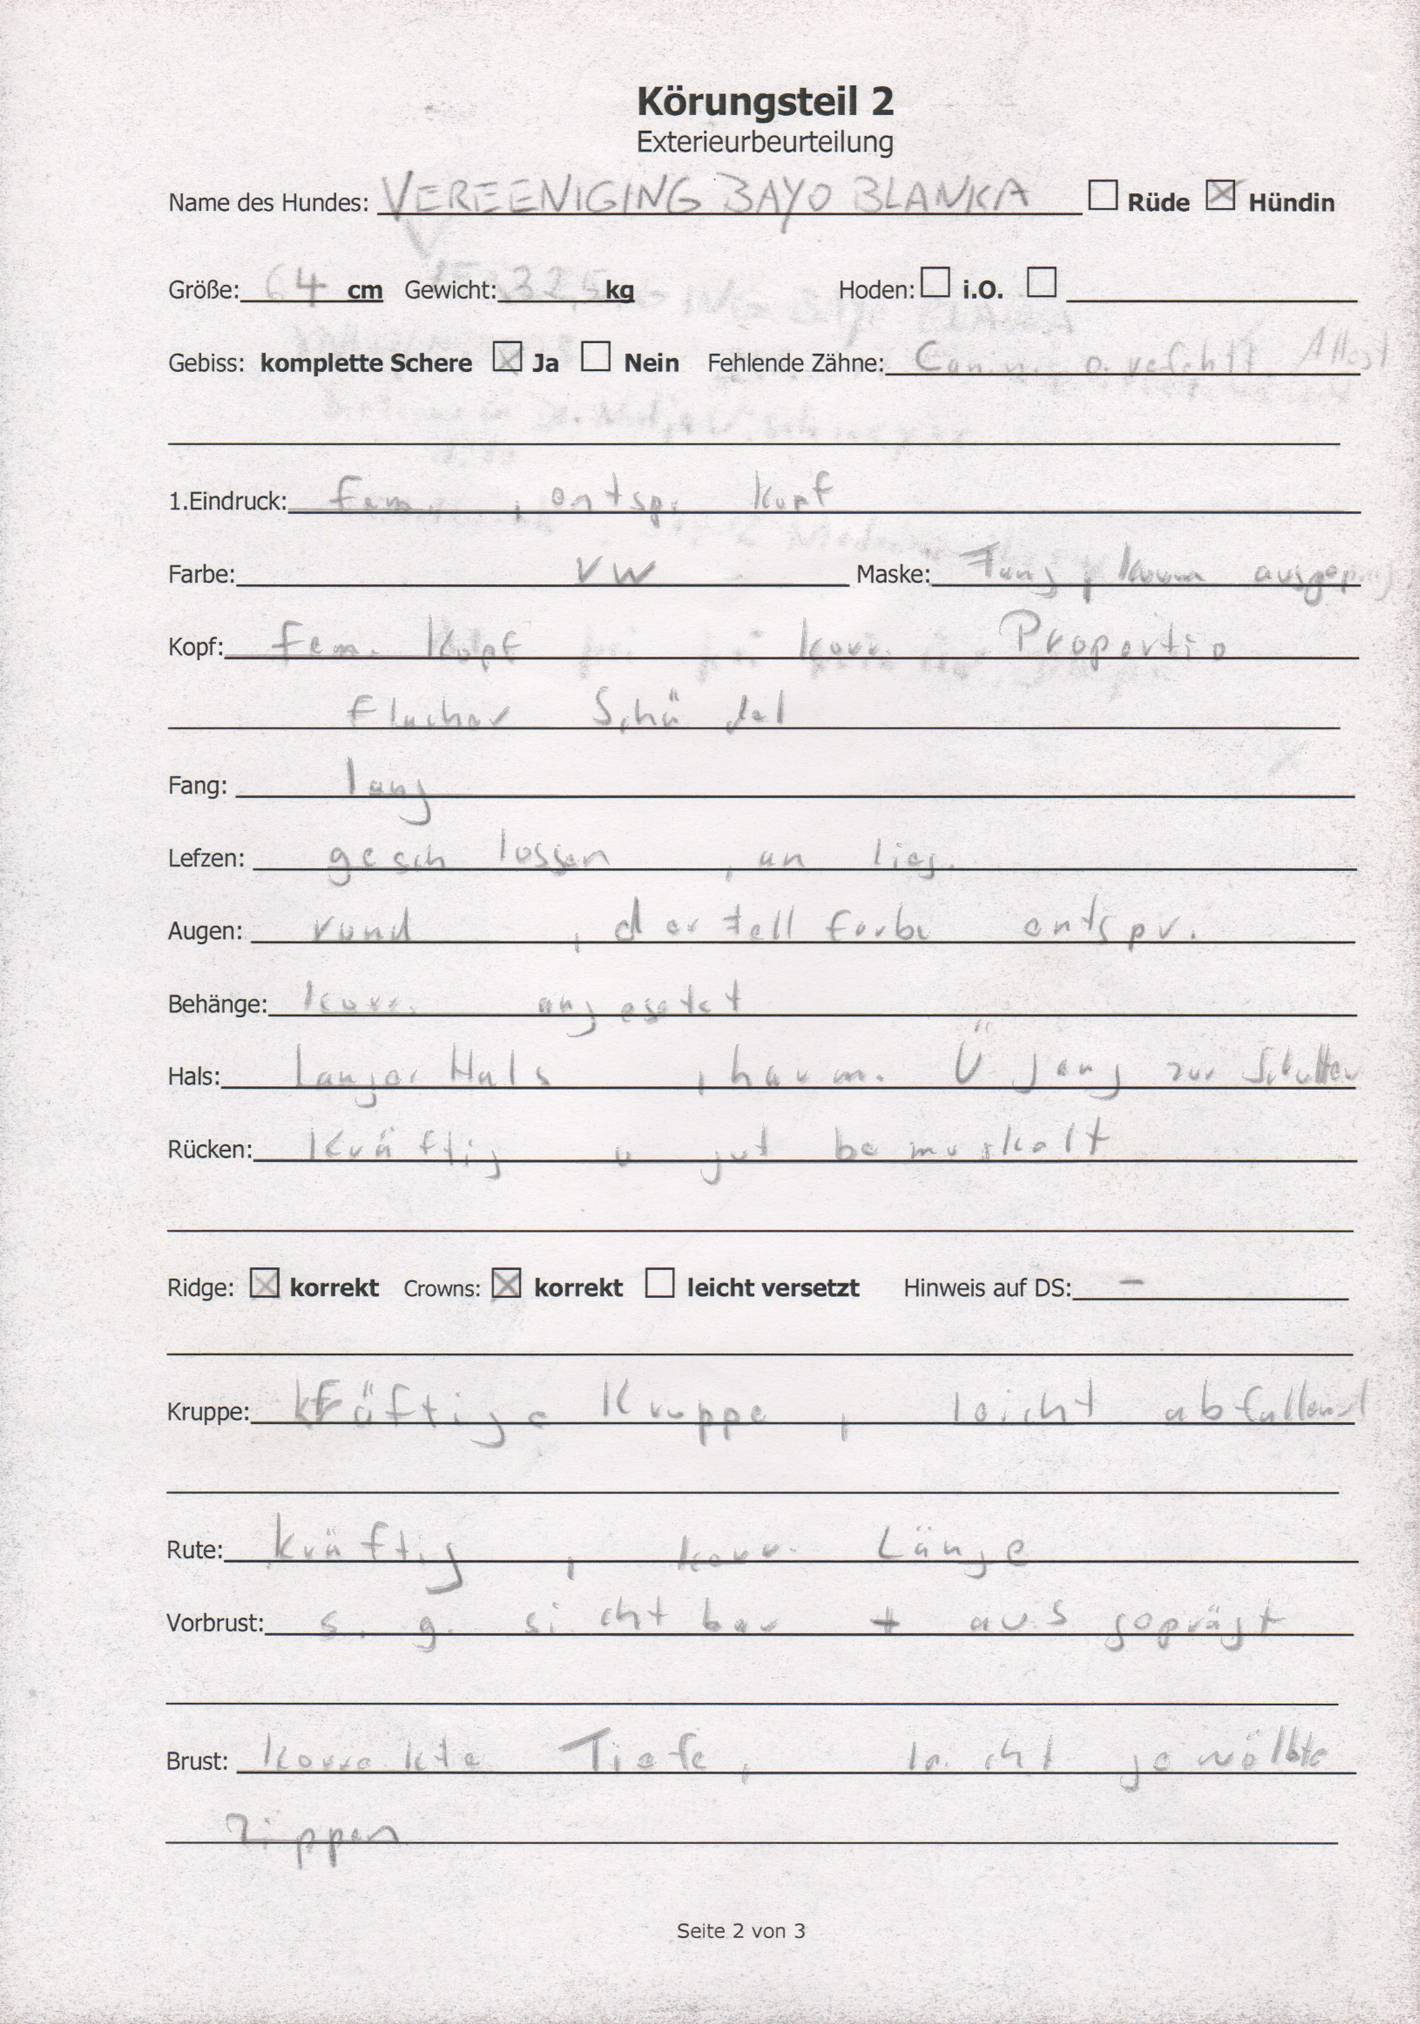 Körungsteil 2
Exterieurbeurteilung
Name des Hundes: VEREENIGING BAYO BLANKA ☐ Rüde ☒ Hündin
Größe: 64 cm Gewicht: 32,5 kg Hoden: ☐ i.O. ☐
Gebiss: komplette Schere ☒ Ja ☐ Nein Fehlende Zähne: Attest
1.Eindruck: fem. , entsp. Kopf
Farbe: VW Maske: Fang, kaum ausgepräg
Kopf: fem. Kopf korr. Proportio
flacher Schädel
Fang: lang
Lefzen: geschlossen , an lieg.
Augen: rund , der Fellfarbe entspr.
Behänge: korr. angesetzt
Hals: Langer Hals , harm. Ü gang zur Schulter
Rücken: Kräftig u gut bemuskelt
Ridge: ☒ korrekt Crowns: ☒ korrekt ☐ leicht versetzt Hinweis auf DS: –
Kruppe: kräftige Kruppe , leicht abfallend
Rute: kräftig , korr. Länge
Vorbrust: s. g. sichtbar + ausgeprägt
Brust: Korrekte Tiefe, gewölbte
Rippen
Seite 2 von 3